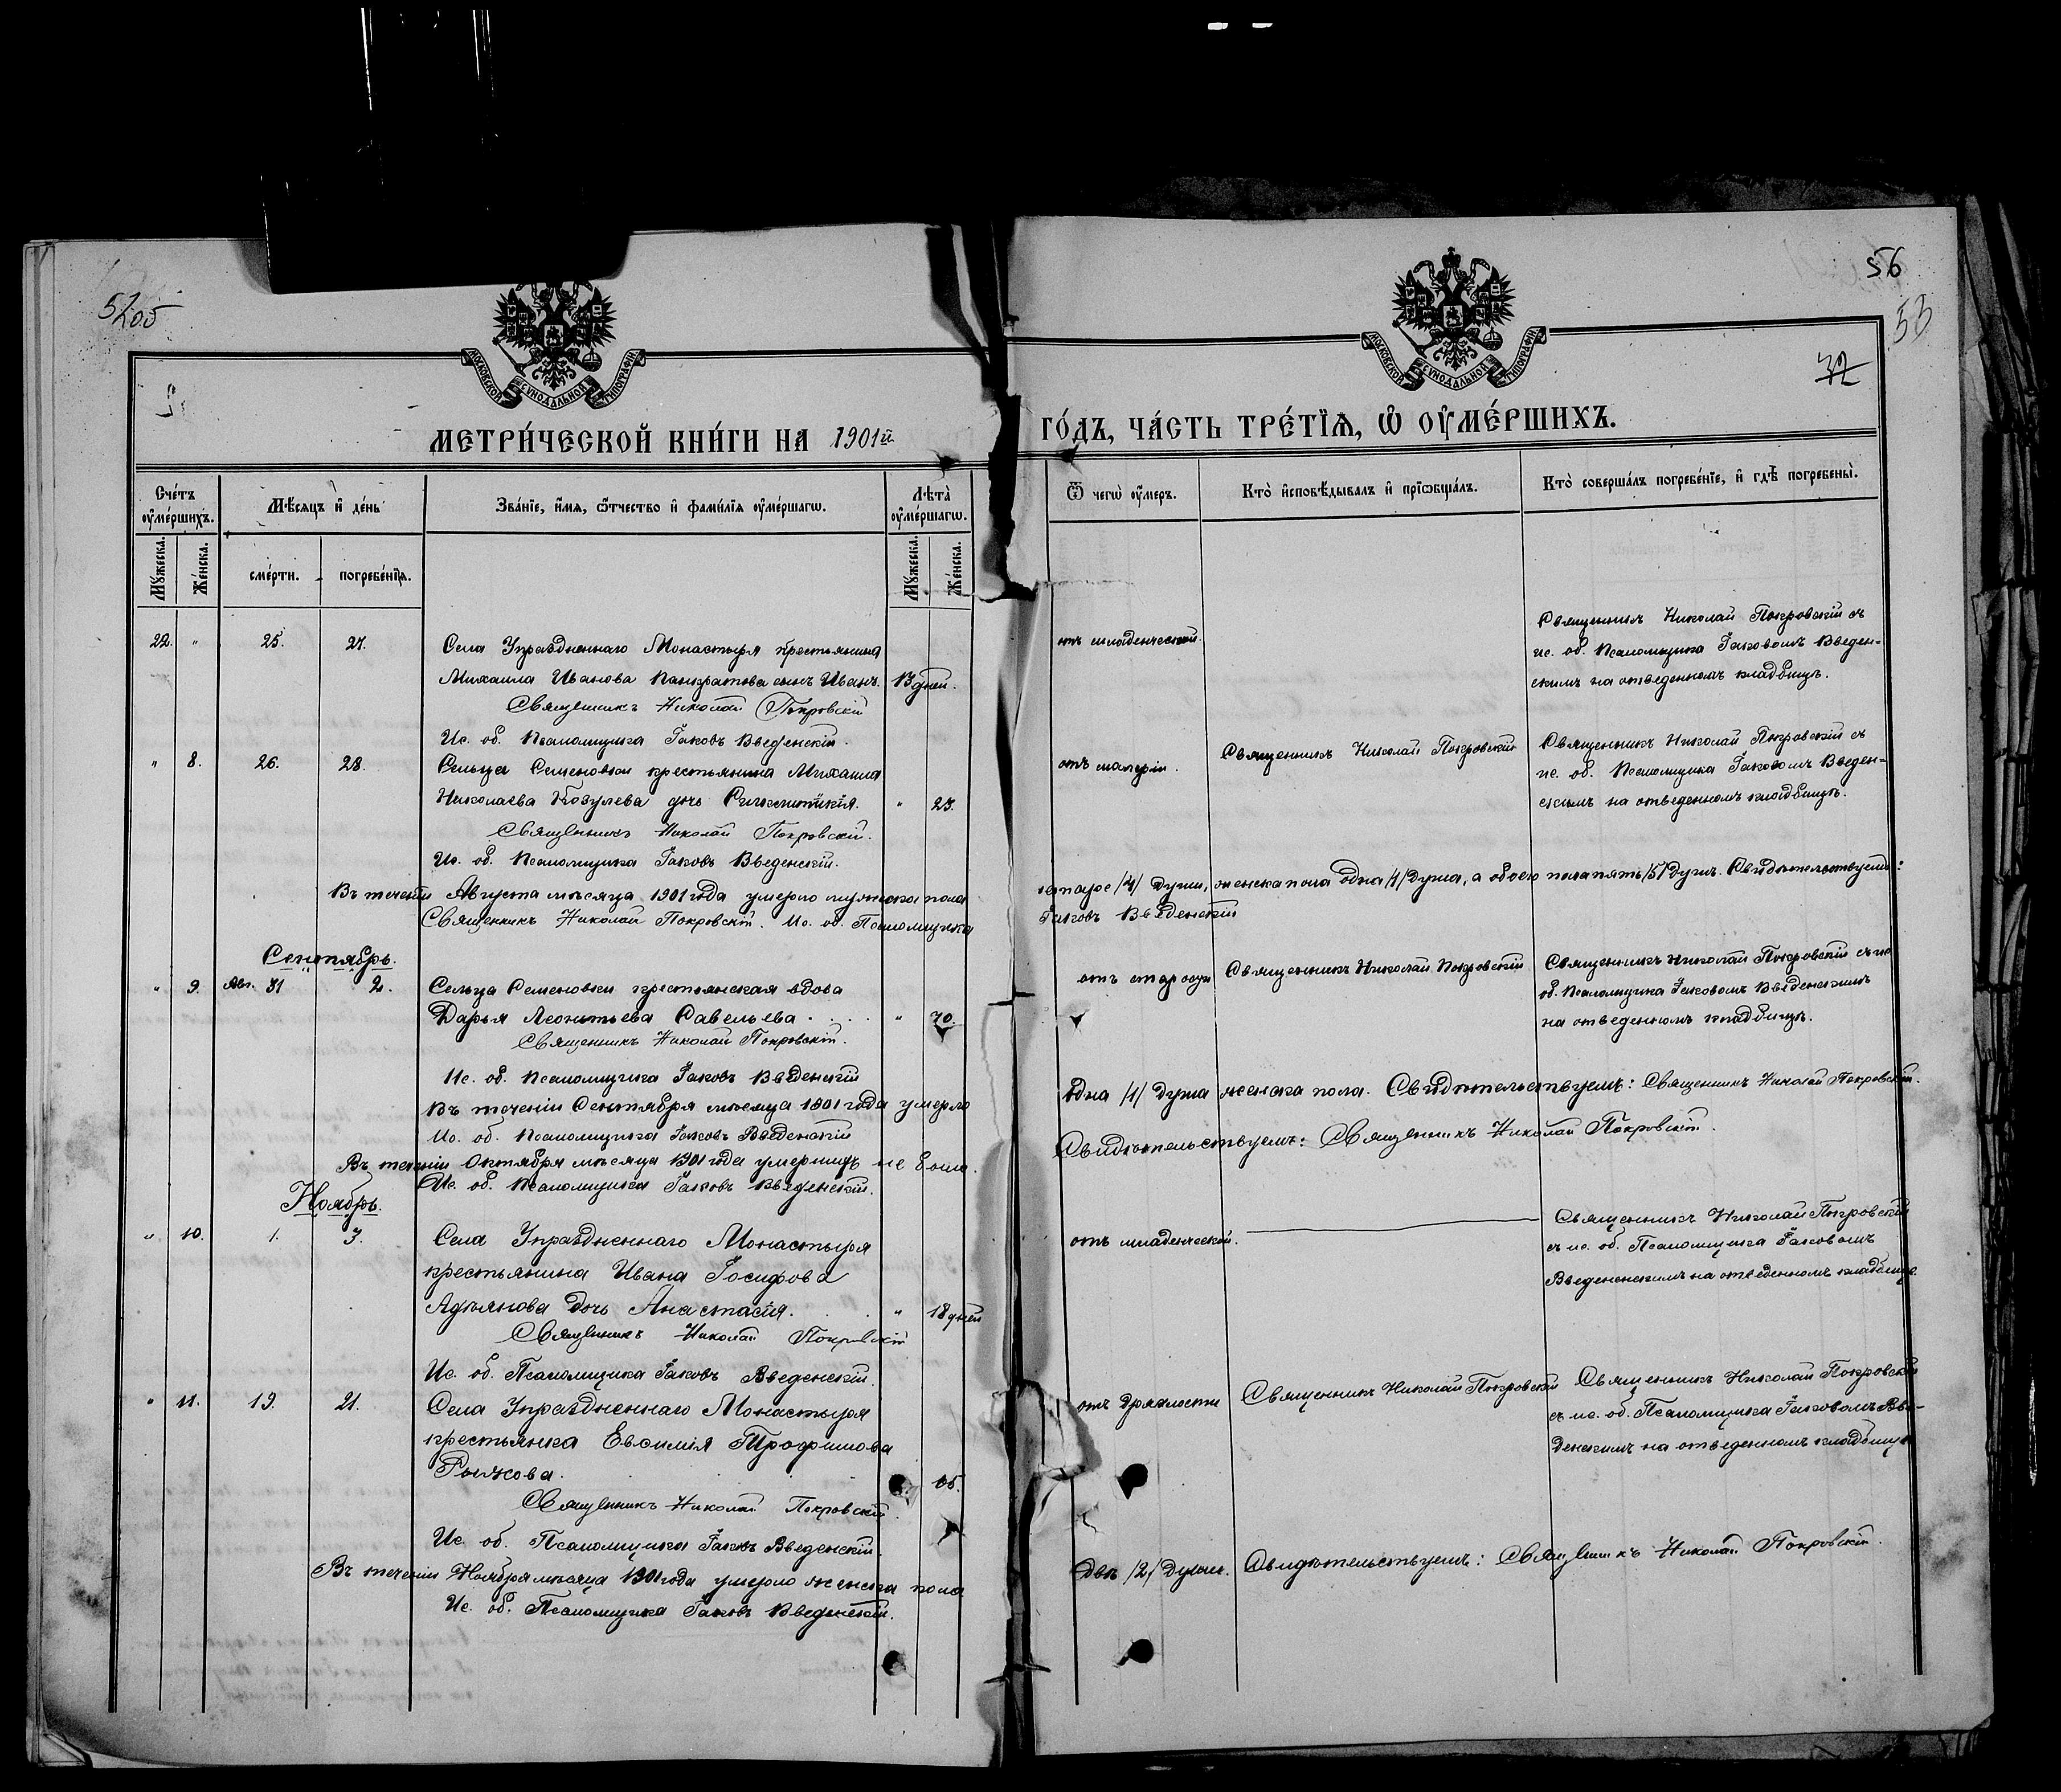 52об
56
53
32
МОСКОВСКОЙ СУНОДАЛЬНОЙ ТИПОГРАФІИ
МОСКОВСКОЙ СУНОДАЛЬНОЙ ТИПОГРАФІИ
МЕТРИ́ЧЕСКОЙ КНИ́ГИ НА 1901й ГО́ДЪ, ЧА́СТЬ ТРЕ́ТІѦ, Ѡ ОУ҆МЕ́РШИХЪ.
Сче́тъ оу҆ме́ршихъ.
Мꙋжеска.
Же́нска.
Мѣ́сѧцъ и҆ де́нь
сме́рти.
погребе́нїѧ.
Зва́нїе, и҆́мѧ, ѻ҆́тчество и҆ фами́лїѧ оу҆ме́ршагѡ.
Лѣ́та̀ оу҆ме́ршагѡ.
Мꙋжеска.
Же́нска.
Ѿ чегѡ̀ оу҆́меръ.
Кто̀ и҆сповѣ́дывалъ и҆ прїѡбща́лъ.
Кто̀ соверша́лъ погребе́нїе, и҆ гдѣ̀ погребены̀.
22. " 25. 27. Села Упраздненнаго Монастыря крестьянина
Михаила Иванова Панкратова сынъ Иванъ. 13 дней.
Священникъ Николай Покровскій
Ис. об. Псаломщика Іаковъ Введенскій.
отъ младенческой.
Священникъ Николай Покровскій съ
ис. об. Псаломщика Іаковомъ Введен-
скимъ на отведенномъ кладбищѣ.
" 8. 26. 28. Сельца Семеновки крестьянина Михаила
Николаева дочь " 23.
Священникъ Николай Покровскій.
Ис. об. Псаломщика Іаковъ Введенскій.
отъ
Священникъ Николай Покровскій
Священникъ Николай Покровскій съ
ис. об. Псаломщика Іаковомъ Введен-
скимъ на отведенномъ кладбищѣ.
Въ теченіи Августа мѣсяца 1901 года умерло мужеска пола четыре /4/ души, женска пола одна /1/ душа, а обоего пола пять /5/ душъ. Свидѣтельствуемъ:
Священникъ Николай Покровскій. Ис. об. Псаломщика Іаковъ Введенскій
Сентябрь.
" 9. Авг. 31 2. Сельца Семеновки крестьянская вдова
Дарья Леонтьева Савельева " 70.
Священникъ Николай Покровскій.
Ис. об. Псаломщика Іаковъ Введенскій
отъ старости
Священникъ Николай Покровскій
Священникъ Николай Покровскій съ ис
об. Псаломщика Іаковомъ Введенскимъ
на отведенномъ кладбищѣ.
Въ теченіи Сентября мѣсяца 1901 года умерло одна /1/ душа женска пола. Свидѣтельствуемъ: Священникъ Николай Покровскій.
Ис. об. Псаломщика Іаковъ Введенскій
Въ теченіи Октября мѣсяца 1901 года умершихъ не было. Свидѣтельствуемъ: Священникъ Николай Покровскій.
Ис. об. Псаломщика Іаковъ Введенскій.
Ноябрь.
" 10. 1. 3. Села Упраздненнаго Монастыря
крестьянина Ивана Іосифова
Адріянова дочь Анастасія. " 18 дней
Священникъ Николай Покровскій
Ис. об. Псаломщика Іаковъ Введенскій.
отъ младенческой.
Священникъ Николай Покровскій
съ ис. об. Псаломщика Іаковомъ
Введененскимъ на отведенномъ кладбищѣ
" 11. 19. 21. Села Упраздненнаго Монастыря
крестьянка Евѳимія Трофимова
Рыжова. 65.
Священникъ Николай Покровскій.
Ис. об. Псаломщика Іаковъ Введенскій.
отъ дряхлости
Священникъ Николай Покровскій
Священникъ Николай Покровскій
съ ис. об. Псаломщика Іаковомъ Вве-
денскимъ на отведенномъ кладбищѣ
Въ теченіи Ноября мѣсяца 1901 года умерло женска пола двѣ /2/ души. Свидѣтельствуемъ: Священникъ Николай Покровскій.
Ис. об. Псаломщика Іаковъ Введенскій.